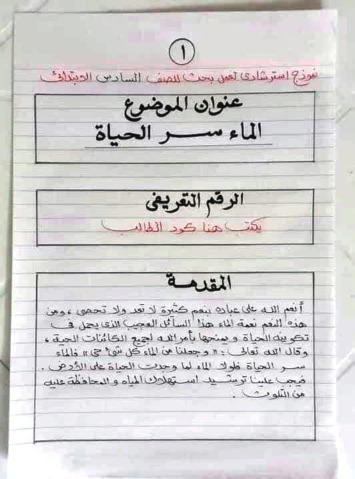 ١
نموذج استرشادى لعمل بحث للصف السادس الابتدائى
عنوان الموضوع
الماء سر الحياة
الرقم التعريفى
يكتب هنا كود الطالب
المقدمة
أنعم الله على عباده بنعم كثيرة لا تعد ولا تحصى ، ومن
هذه النعم نعمة الماء هذا السائل العجيب الذى يحمل فى
تكوينه الحياة و يمنحها بأمر الله لجميع الكائنات الحية ،
وقال الله تعالى : " وجعلنا من الماء كل شئ حى " فالماء
سر الحياة فلولا الماء لما وجدت الحياة على الأرض .
فيجب علينا ترشيد استهلاك المياه و المحافظة عليه
من التلوث .